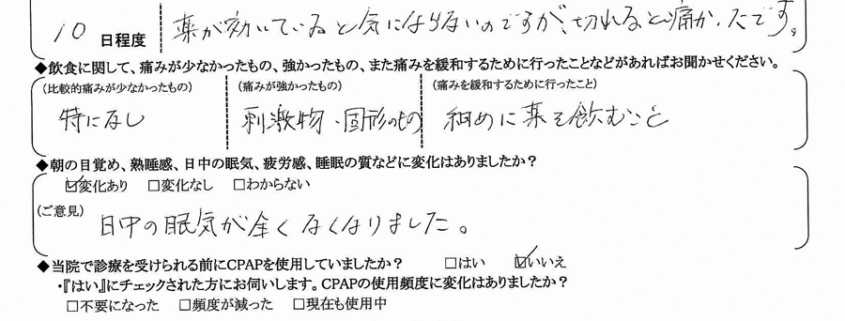 10 日程度 薬が効いていると気にはならないのですが、切れると痛かったです。
◆飲食に関して、痛みが少なかったもの、強かったもの、また痛みを緩和するために行ったことなどがあればお聞かせください。
(比較的痛みが少なかったもの) (痛みが強かったもの) (痛みを緩和するために行ったこと)
特になし 刺激物・固形のもの 細めに薬を飲むこと
◆朝の目覚め、熟睡感、日中の眠気、疲労感、睡眠の質などに変化はありましたか？
☑変化あり □変化なし □わからない
(ご意見) 日中の眠気が全くなくなりました。
◆当院で診療を受けられる前にCPAPを使用していましたか？ □はい ☑いいえ
・『はい』にチェックされた方にお伺いします。CPAPの使用頻度に変化はありましたか？
□不要になった □頻度が減った □現在も使用中